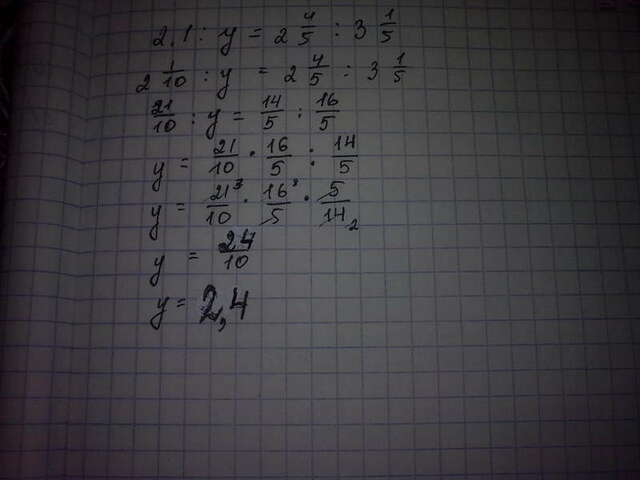 2,1 : y = 2 4/5 : 3 1/5
2 1/10 : y = 2 4/5 : 3 1/5
21/10 : y = 14/5 : 16/5
y = 21/10 · 16/5 : 14/5
y = 21³/10 · 16⁸/5 · 5/14₂
y = 24/10
y = 2,4